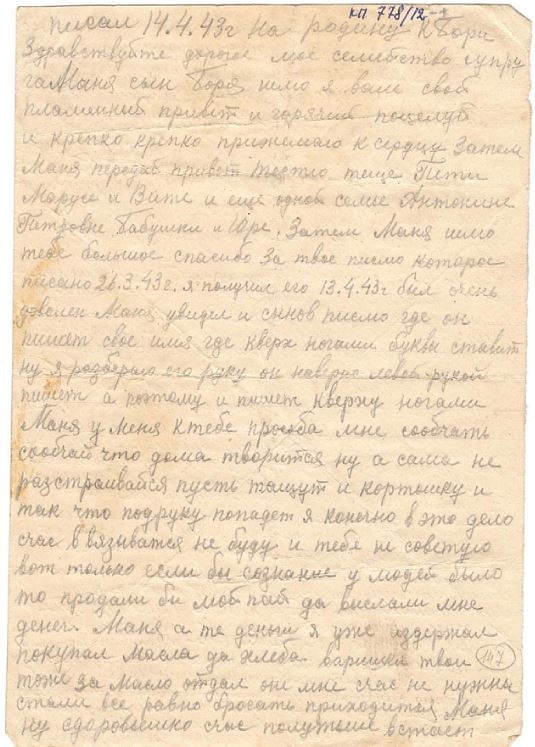 кп 778/12-1
писал 14.4.43г На родину к Боре
Здравствуйте дорогое мое семейство супру
га Маня сын Боря шлю я вам свой
пламенний привет и горячий поцелуй
и крепко крепко прижемаю к сердцу Затем
Маня передай привет теще Пети
Марусе и Вите и еще одной семье Антонине
Петровне Бабушки и Юре. Затем Маня шлю
тебе большое спасибо За твое писмо которое
писано 26.3.43г. я получил его 13.4.43г был очень
доволен Маня увидел и сынов писмо где он
пишет свое имя где кверх ногами буквы ставит
ну я разбераю его руку он наверно левой рукой
пишет а поэтому и пишет кверху ногами
Маня у меня к тебе прозба мне сообчать
сообчай что дома творится ну а сама не
разстраивайся пусть тащут и кортошку и
так что подруку попадет я конечно в это дело
счас ввязыватся не буду и тебе не советую
вот только если бы сознание у людей было
то продали би мой пай да выслали мне
денег. Маня а те деньги я уже издержал
покупал Масла да хлеба варишки твои
тоже за Масло отдал они мне счас не нужны
147
стали все равно бросать приходится Маня
ну здоровьишко счас получьше встает